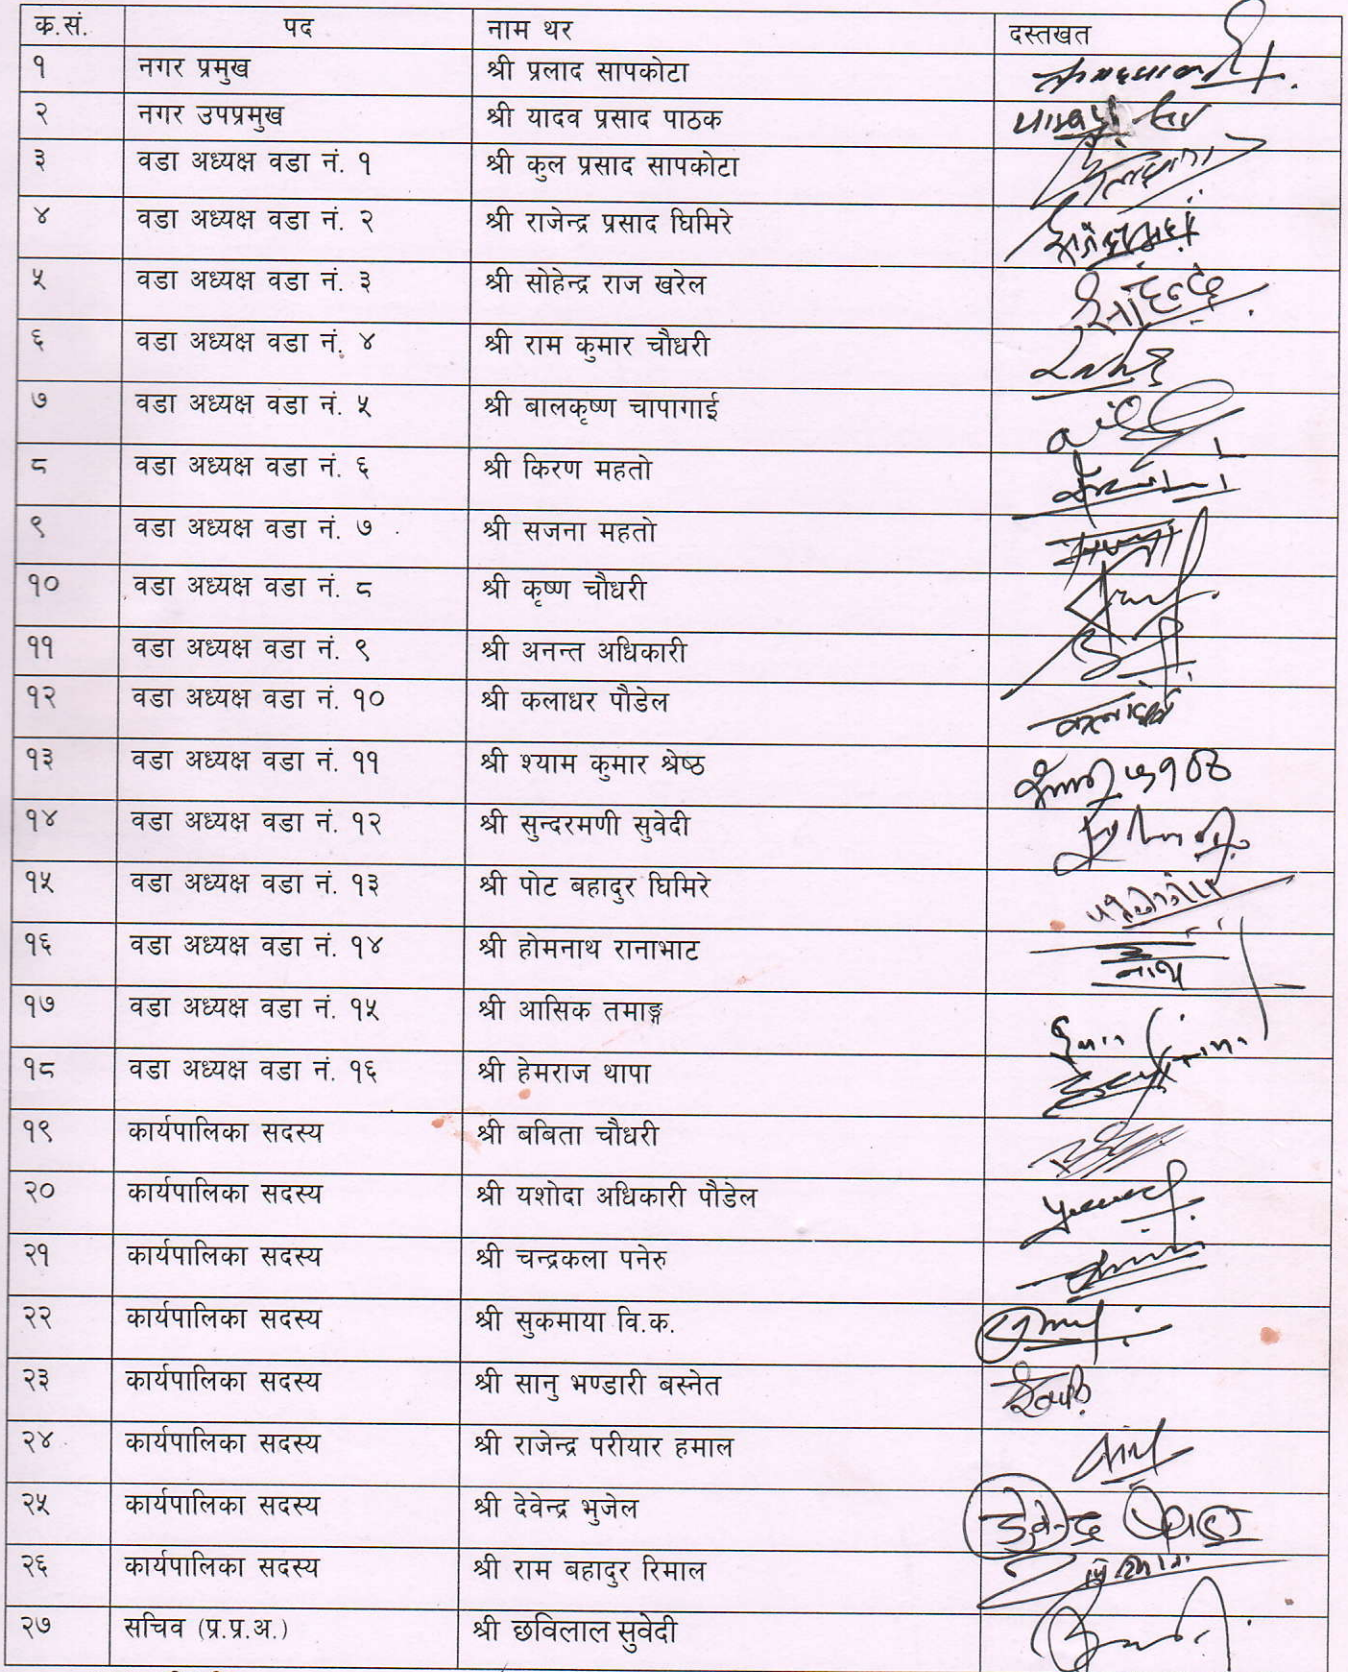 क.सं. पद नाम थर दस्तखत
१ नगर प्रमुख श्री प्रलाद सापकोटा
२ नगर उपप्रमुख श्री यादव प्रसाद पाठक
३ वडा अध्यक्ष वडा नं. १ श्री कुल प्रसाद सापकोटा
४ वडा अध्यक्ष वडा नं. २ श्री राजेन्द्र प्रसाद घिमिरे
५ वडा अध्यक्ष वडा नं. ३ श्री सोहेन्द्र राज खरेल
६ वडा अध्यक्ष वडा नं. ४ श्री राम कुमार चौधरी
७ वडा अध्यक्ष वडा नं. ५ श्री बालकृष्ण चापागाई
८ वडा अध्यक्ष वडा नं. ६ श्री किरण महतो
९ वडा अध्यक्ष वडा नं. ७ श्री सजना महतो
१० वडा अध्यक्ष वडा नं. ८ श्री कृष्ण चौधरी
११ वडा अध्यक्ष वडा नं. ९ श्री अनन्त अधिकारी
१२ वडा अध्यक्ष वडा नं. १० श्री कलाधर पौडेल
१३ वडा अध्यक्ष वडा नं. ११ श्री श्याम कुमार श्रेष्ठ
१४ वडा अध्यक्ष वडा नं. १२ श्री सुन्दरमणी सुवेदी
१५ वडा अध्यक्ष वडा नं. १३ श्री पोट बहादुर घिमिरे
१६ वडा अध्यक्ष वडा नं. १४ श्री होमनाथ रानाभाट
१७ वडा अध्यक्ष वडा नं. १५ श्री आसिक तमाङ्ग
१८ वडा अध्यक्ष वडा नं. १६ श्री हेमराज थापा
१९ कार्यपालिका सदस्य श्री बबिता चौधरी
२० कार्यपालिका सदस्य श्री यशोदा अधिकारी पौडेल
२१ कार्यपालिका सदस्य श्री चन्द्रकला पनेरु
२२ कार्यपालिका सदस्य श्री सुकमाया वि.क.
२३ कार्यपालिका सदस्य श्री सानु भण्डारी बस्नेत
२४ कार्यपालिका सदस्य श्री राजेन्द्र परीयार हमाल
२५ कार्यपालिका सदस्य श्री देवेन्द्र भुजेल
२६ कार्यपालिका सदस्य श्री राम बहादुर रिमाल
२७ सचिव (प्र.प्र.अ.) श्री छविलाल सुवेदी